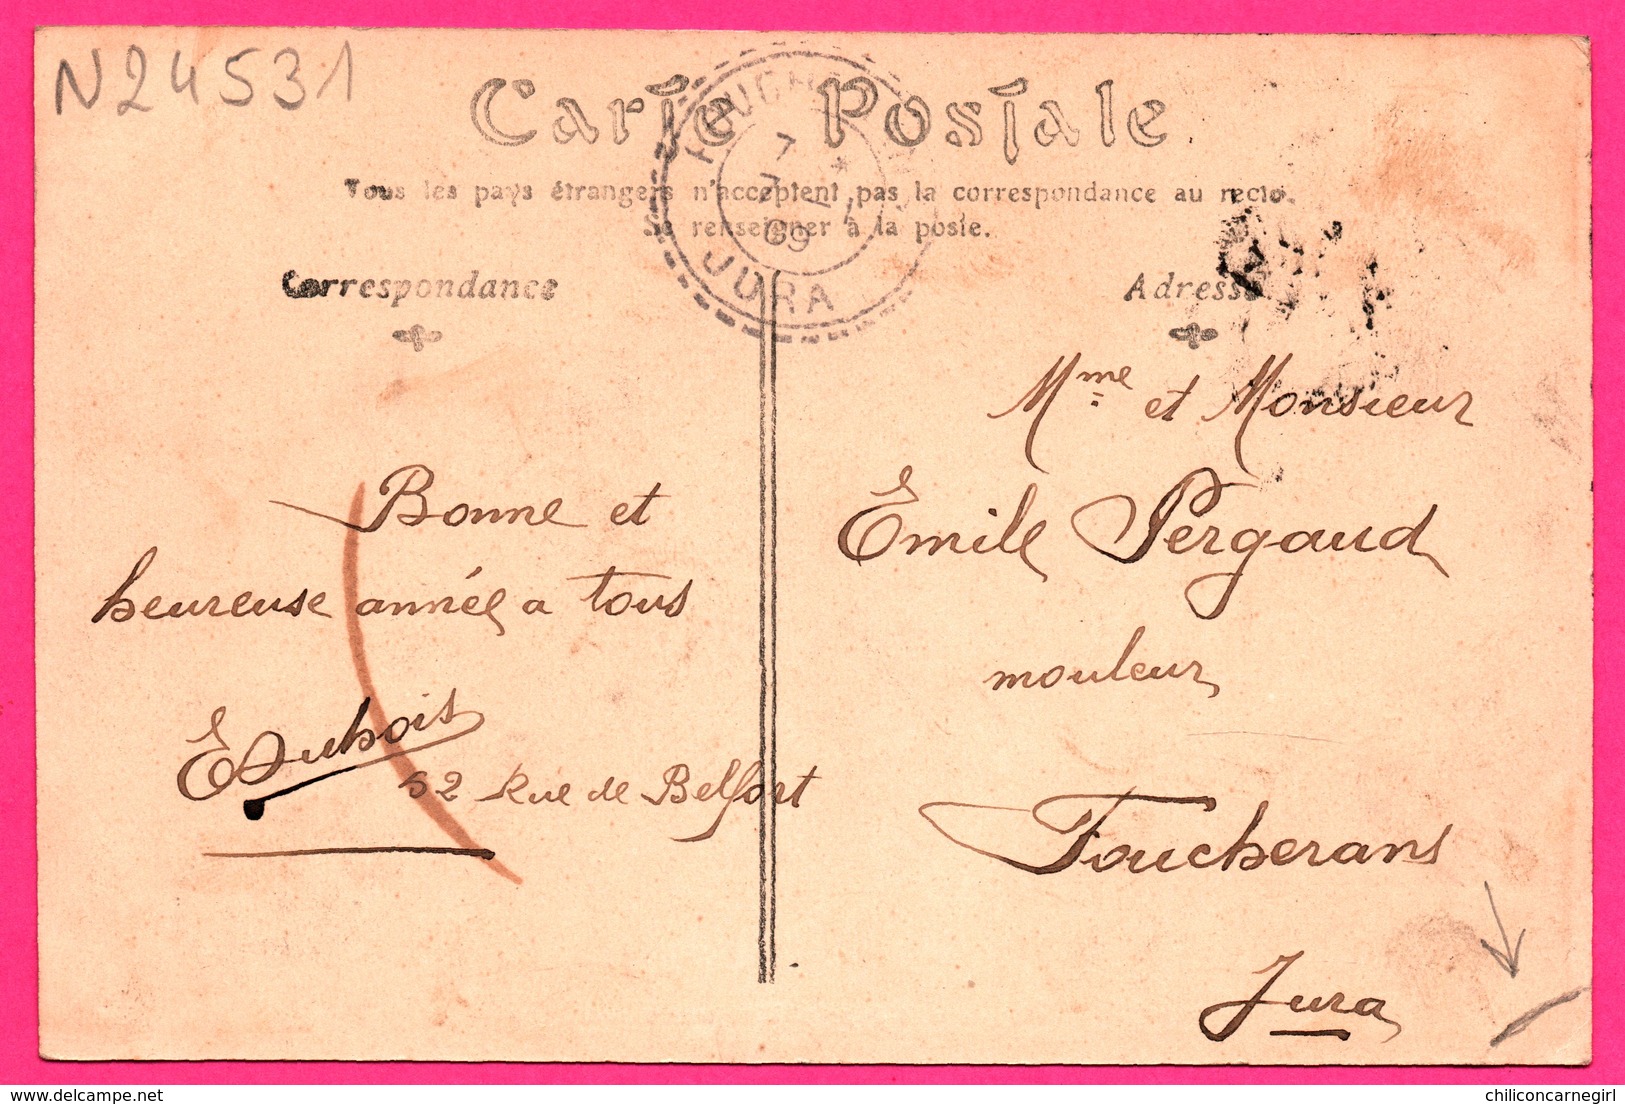 N24531
Carte Postale
Tous les pays étrangers n'acceptent pas la correspondance au recto.
Se renseigner à la poste.
7
09
JURA
Correspondance
Adresse
Bonne et
heureuse année a tous
E Dubois
52 Rue de Belfort
Mme et Monsieur
Emile Pergaud
mouleur
Foucherans
Jura
delcampe.net
chiliconcarnegirl